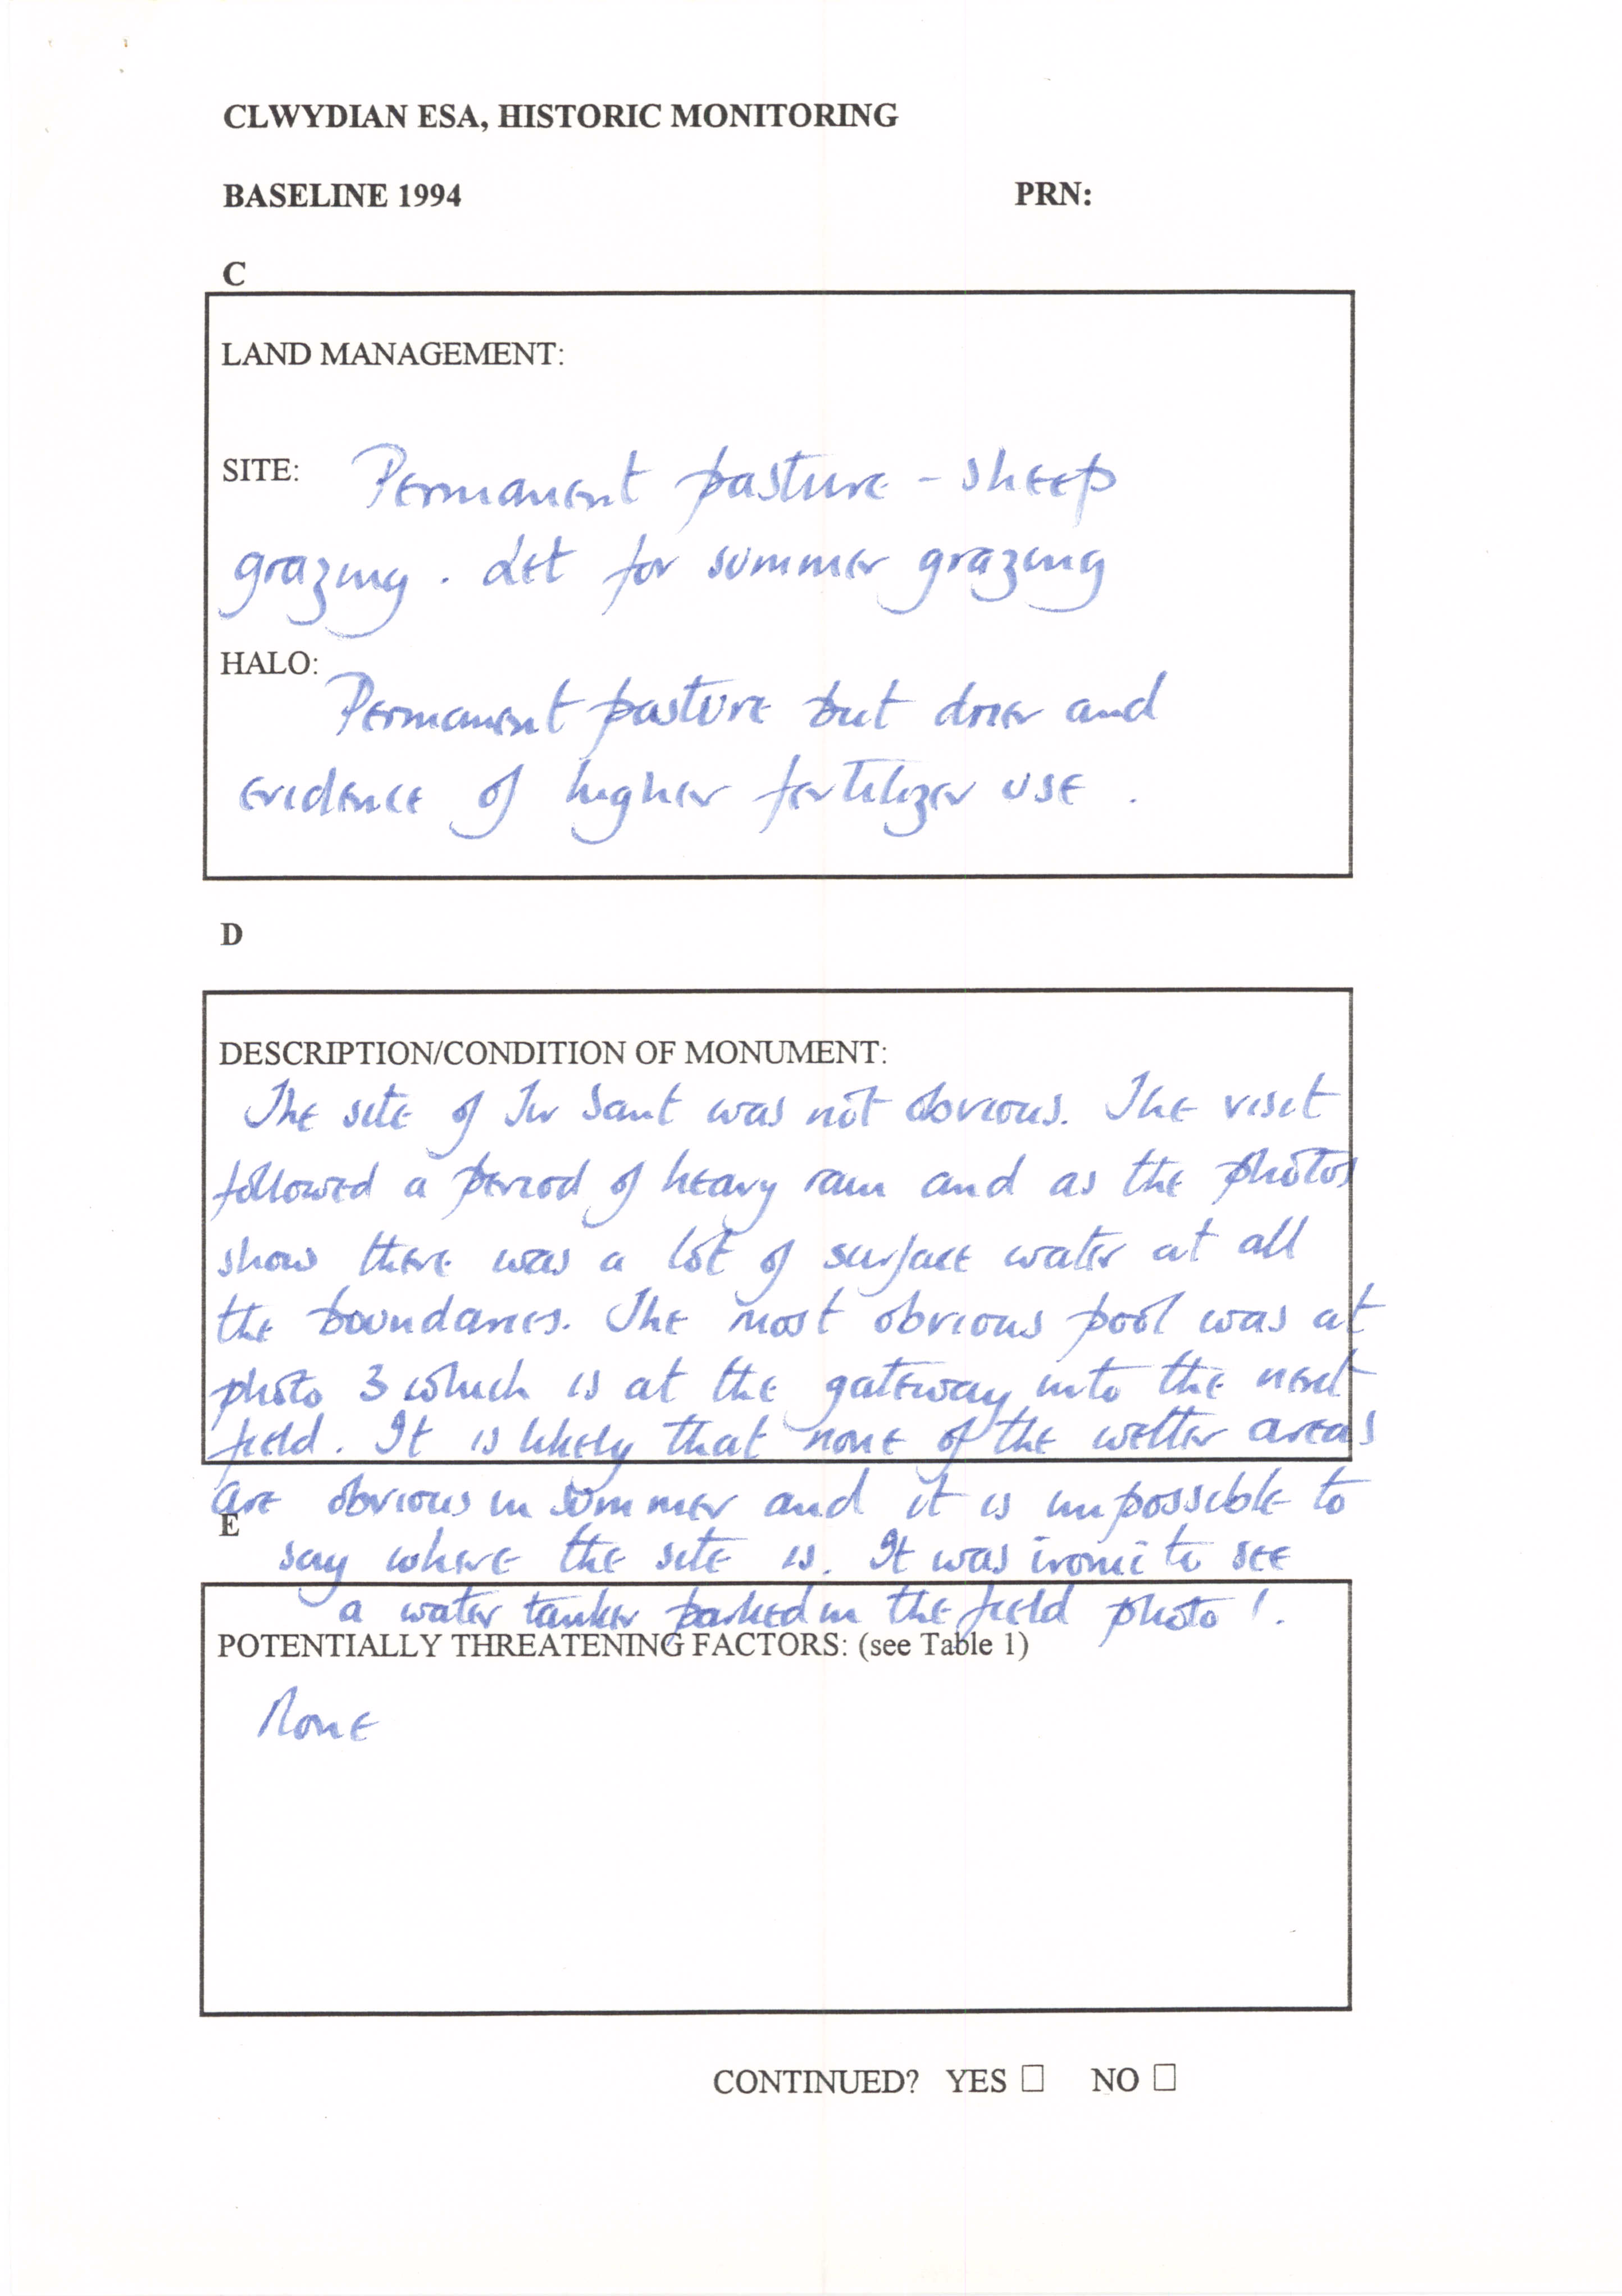 CLWYDIAN ESA, HISTORIC MONITORING
BASELINE 1994 PRN:
C
LAND MANAGEMENT:
SITE: Permanent pasture - sheep
grazing. Let for summer grazing
HALO:
Permanent pasture but drier and
evidence of higher fertilizer use.
D
DESCRIPTION/CONDITION OF MONUMENT:
The site of Sant was not obvious. The visit
followed a period of heavy rain and as the photos
show there was a lot of surface water at all
the boundaries. The most obvious pool was at
photo 3 which is at the gateway into the next
field. It is likely that none of the wetter areas
are obvious in summer and it is impossible to
E
say where the site is. It was ironic to see
a water tanker parked in the field photo 1.
POTENTIALLY THREATENING FACTORS: (see Table 1)
None
CONTINUED? YES □ NO □